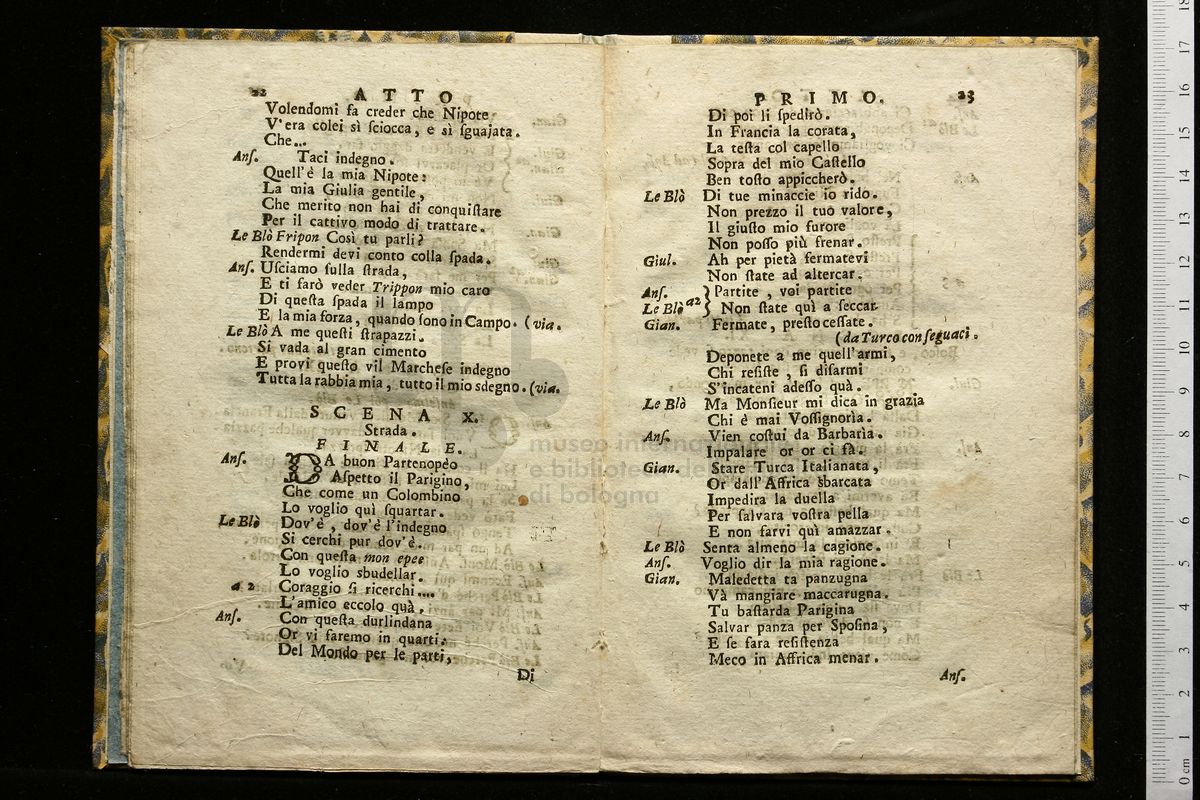 22 ATTO
Volendomi fa creder che Nipote
V'era colei sì ſciocca, e sì ſguajata.
Che...
Anſ. Taci indegno.
Quell'è la mia Nipote:
La mia Giulia gentile,
Che merito non hai di conquiſtare
Per il cattivo modo di trattare.
Le Blò Fripon Così tu parli?
Rendermi devi conto colla ſpada.
Anſ. Uſciamo ſulla ſtrada,
E ti farò veder Trippon mio caro
Di queſta ſpada il lampo
E la mia forza, quando ſono in Campo. (via.
Le Blò A me queſti ſtrapazzi.
Si vada al gran cimento
E provi queſto vil Marcheſe indegno
Tutta la rabbia mia, tutto il mio sdegno. (via.
SCENA X.
Strada.
FINALE.
Anſ. DA buon Partenopèo
Aſpetto il Parigino,
Che come un Colombino
Lo voglio quì ſquartar.
Le Blò Dov'è, dov'è l'indegno
Si cerchi pur dov'è.
Con queſta mon epee
Lo voglio sbudellar.
a 2 Coraggio ſi ricerchi....
L'amico eccolo quà.
Anſ. Con queſta durlindana
Or vi faremo in quarti:
Del Mondo per le parti,
Di
PRIMO. 23
Di poi li ſpedirò.
In Francia la corata,
La teſta col capello
Sopra del mio Caſtello
Ben toſto appiccherò.
Le Blò Di tue minaccie io rido.
Non prezzo il tuo valore,
Il giuſto mio furore
Non poſſo più frenar.
Giul. Ah per pietà fermatevi
Non ſtate ad altercar.
Anſ. Partite, voi partite
Le Blò a2 Non ſtate quì a ſeccar.
Gian. Fermate, preſto ceſſate.
(da Turco con ſeguaci.
Deponete a me quell'armi,
Chi reſiſte, ſi diſarmi
S'incateni adeſſo quà.
Le Blò Ma Monſieur mi dica in grazia
Chi è mai Voſſignorìa.
Anſ. Vien coſtui da Barbarìa.
Impalare or or ci fà.
Gian. Stare Turca Italianata,
Or dall'Affrica sbarcata
Impedira la duella
Per ſalvara voſtra pella
E non farvi quì amazzar.
Le Blò Senta almeno la cagione.
Anſ. Voglio dir la mia ragione.
Gian. Maledetta ta panzugna
Và mangiare maccarugna.
Tu baſtarda Parigina
Salvar panza per Spoſina,
E ſe fara reſiſtenza
Meco in Affrica menar.
Anſ.
museo internazionale
e biblioteca della
di bologna